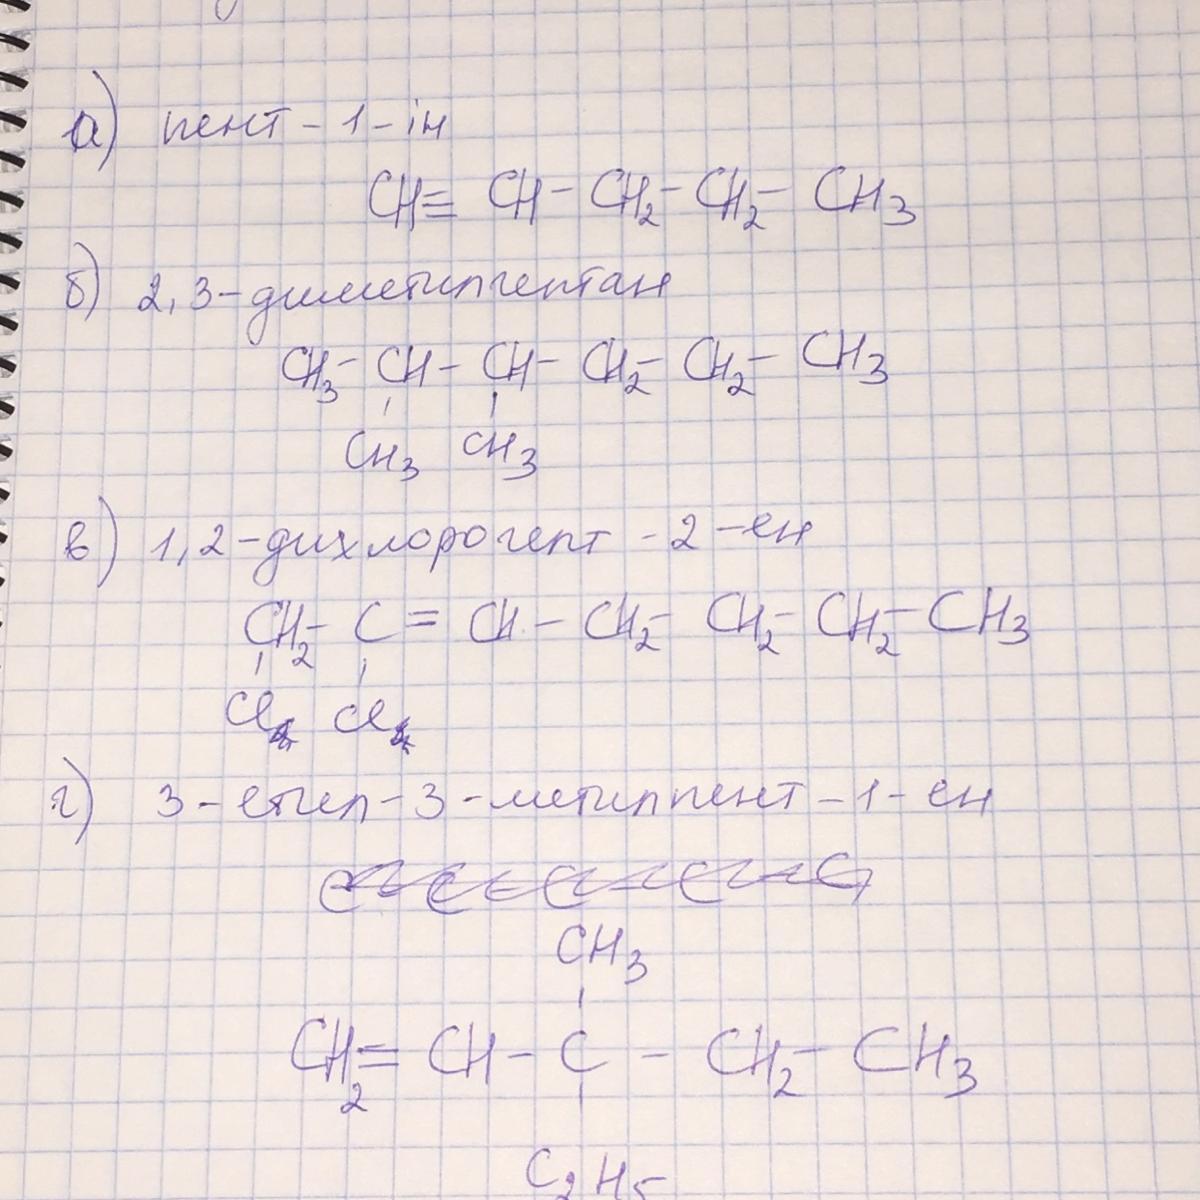 а) пент-1-ін
CH≡CH-CH2-CH2-CH3
б) 2,3-диметилгептан
CH3-CH-CH-CH2-CH2-CH3
CH3 CH3
в) 1,2-дихлорогепт-2-ен
CH2-C=CH-CH2-CH2-CH2-CH3
Cl Cl
г) 3-етил-3-метилпент-1-ен
CH3
CH2=CH-C-CH2-CH3
C2H5